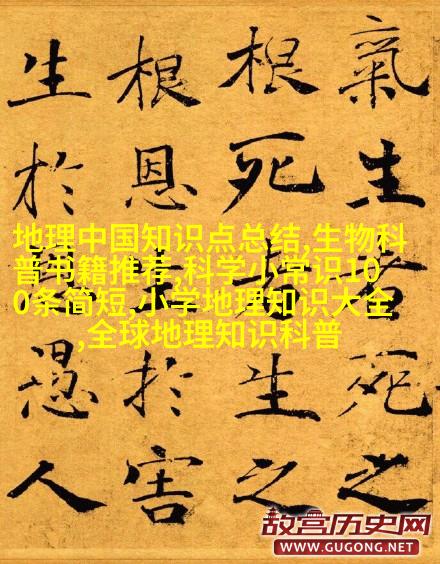 氣生者死之
根死者生之
根恩生於害
生於恩愚人
地理中国知识点总结,生物科
普书籍推荐,科学小常识10
0条简短,小学地理知识大全
,全球地理知识科普
故宫历史网
WWW.GUGONG.NET